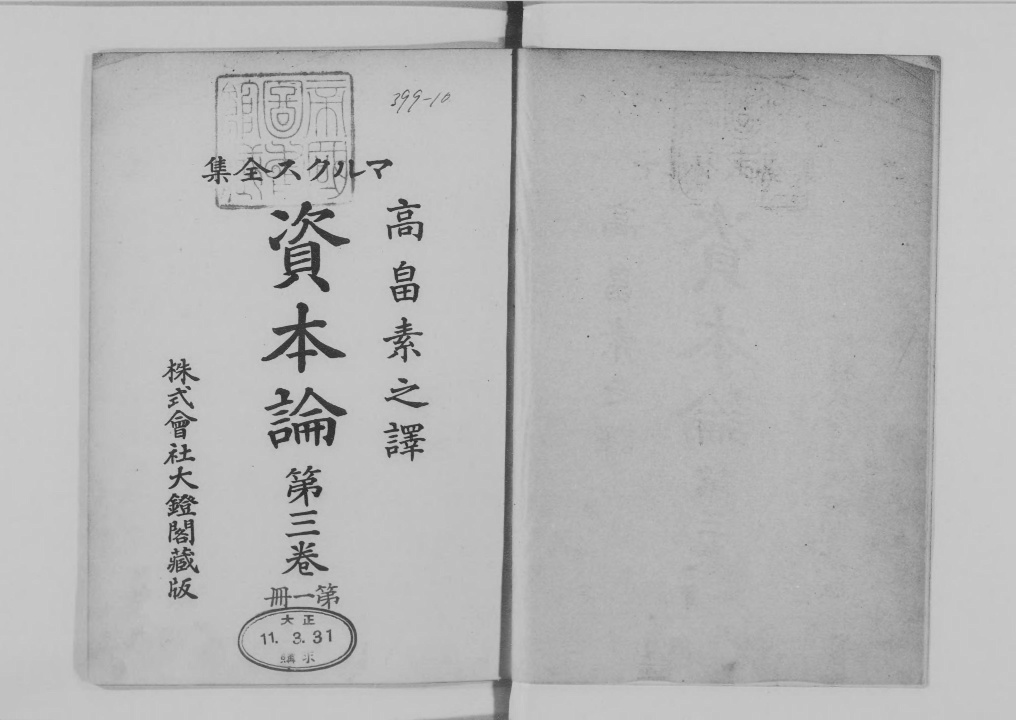 399-10
マルクス全集
高畠素之譯
資本論 第三卷
第一册
株式會社大鐙閣藏版
大正
11. 3. 31
購求